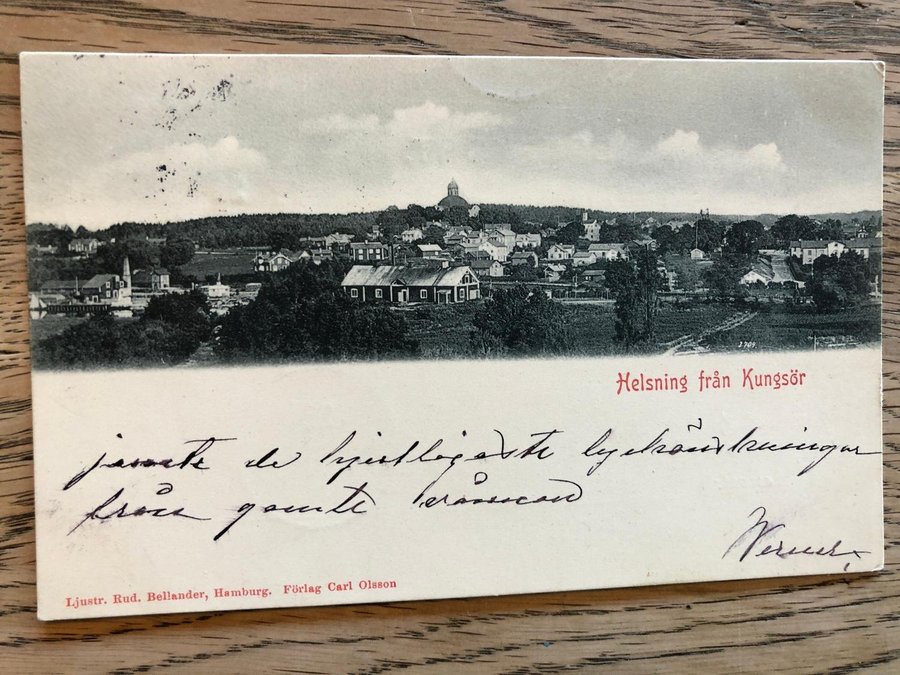 Helsning från Kungsör
jemte de hjertligaste lyckönskningar
från gamle
Werner
Ljustr. Rud. Bellander, Hamburg. Förlag Carl Olsson